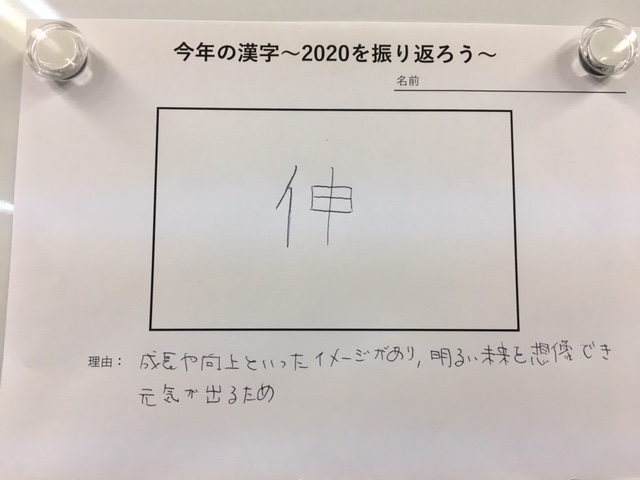 今年の漢字~2020を振り返ろう~
名前
伸
理由: 成長や向上といったイメージがあり, 明るい未来を想像でき
元気が出るため